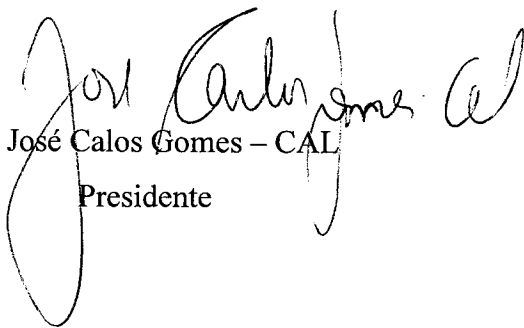 José Carlos Gomes Cal
José Calos Gomes – CAL
Presidente